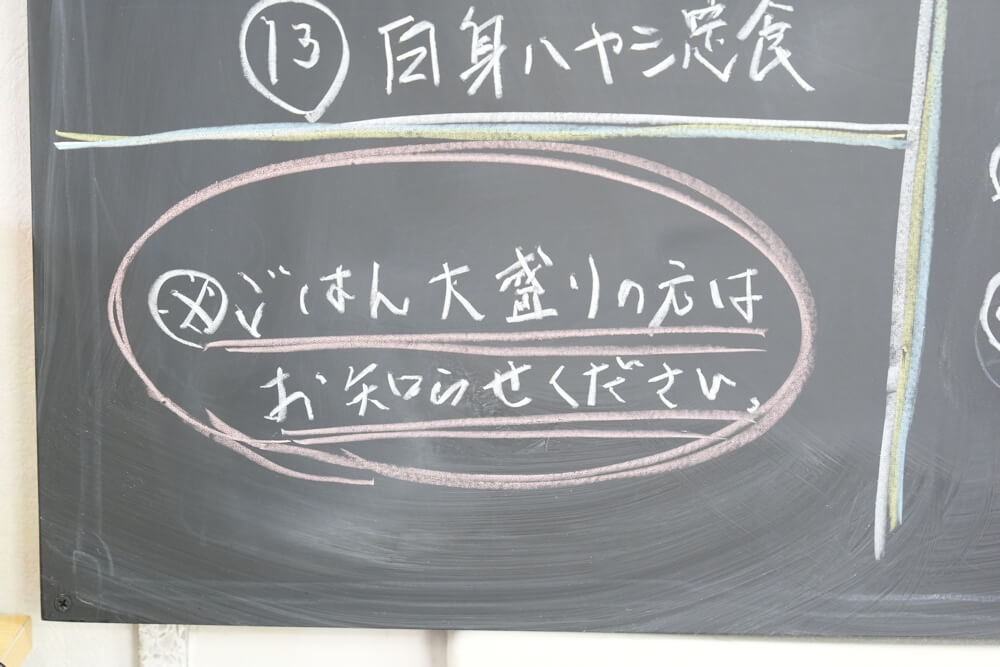 ⑬ 白身ハヤシ定食
※ごはん大盛りの方は
お知らせください。